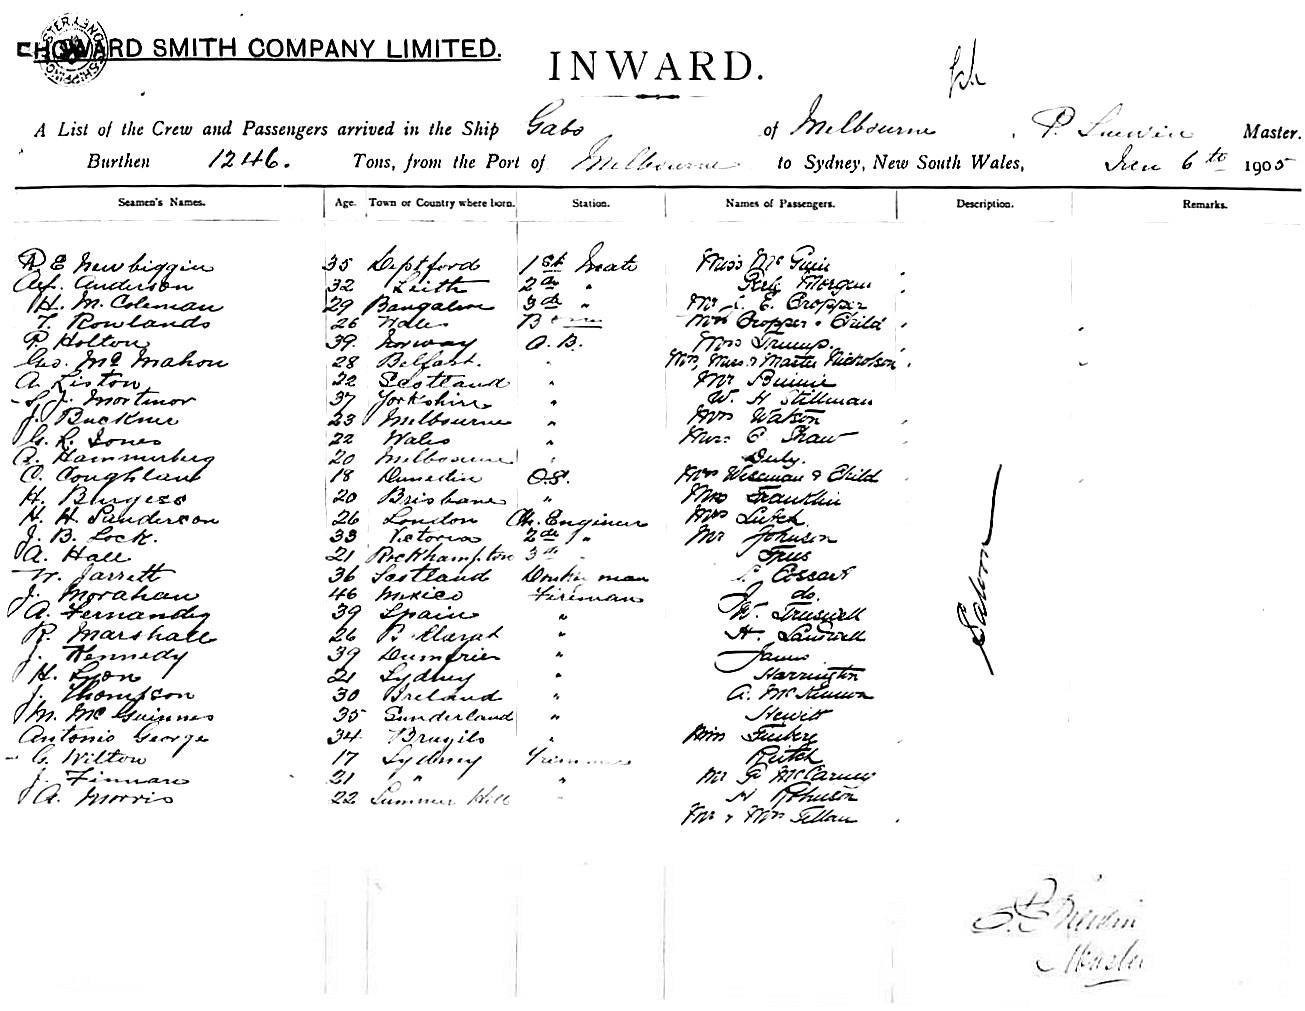 HOWARD SMITH COMPANY LIMITED.
INWARD.
A List of the Crew and Passengers arrived in the Ship Gabo of Melbourne, P. Master.
Burthen 1246. Tons, from the Port of Melbourne to Sydney, New South Wales, 6th 1905
Seamen's Names. Age. Town or Country where born. Station. Names of Passengers. Description. Remarks.
R E Newbiggin 35 Deptford 1st Mate Miss McGuir
Alf. Anderson 32 Leith 2nd " Morgan
H. M. Coleman 29 Bangalore 3rd " Mr E. Cropper
T. Rowlands 26 Wales Mrs Cropper & Child
P. Holton 39. Norway A. B. Mrs Trump.
Geo. McMahon 28 Belfast. " Mrs, Miss & Master Nicholson
A. Liston 22 Scotland " Mr Binnie
S. J. Mortimor 37 Yorkshire " W. H Stillman
J. Buckner 23 Melbourne " Mrs Watson
G. R. Jones 22 Wales " C Shaw
A. Hammerberg 20 Melbourne " Duly.
C. Coughlan 18 Dunedin O.S. Mrs Wiseman & Child
H. Burgess 20 Brisbane " Mrs Franklin
H. H. Sanderson 26 London Ch. Engineer Mrs
J. B. Lock. 33 Victoria 2nd " Mr Johnson
A. Hall 21 Rockhampton 3rd "
W. Jarrett 36 Scotland Donkeyman Cossart
J. Morahan 46 Mexico Fireman do.
A. Fernandez 39 Spain " W. Truswell
R. Marshall 26 "
J. Kennedy 39 Dumfries " James
H. Lyon 21 Sydney " Harrington
J. Thompson 30 Ireland " A. McKinnon
M. McGuinness 35 Sunderland " Hewitt
Antonio George 34 " Miss
C. Wilton 17 Sydney Trimmer
J. Finnan 21 " " Mr G McCarney
A. Morris 22 Summer Hill " H Robinson
Mr & Mrs
Saloon
Master